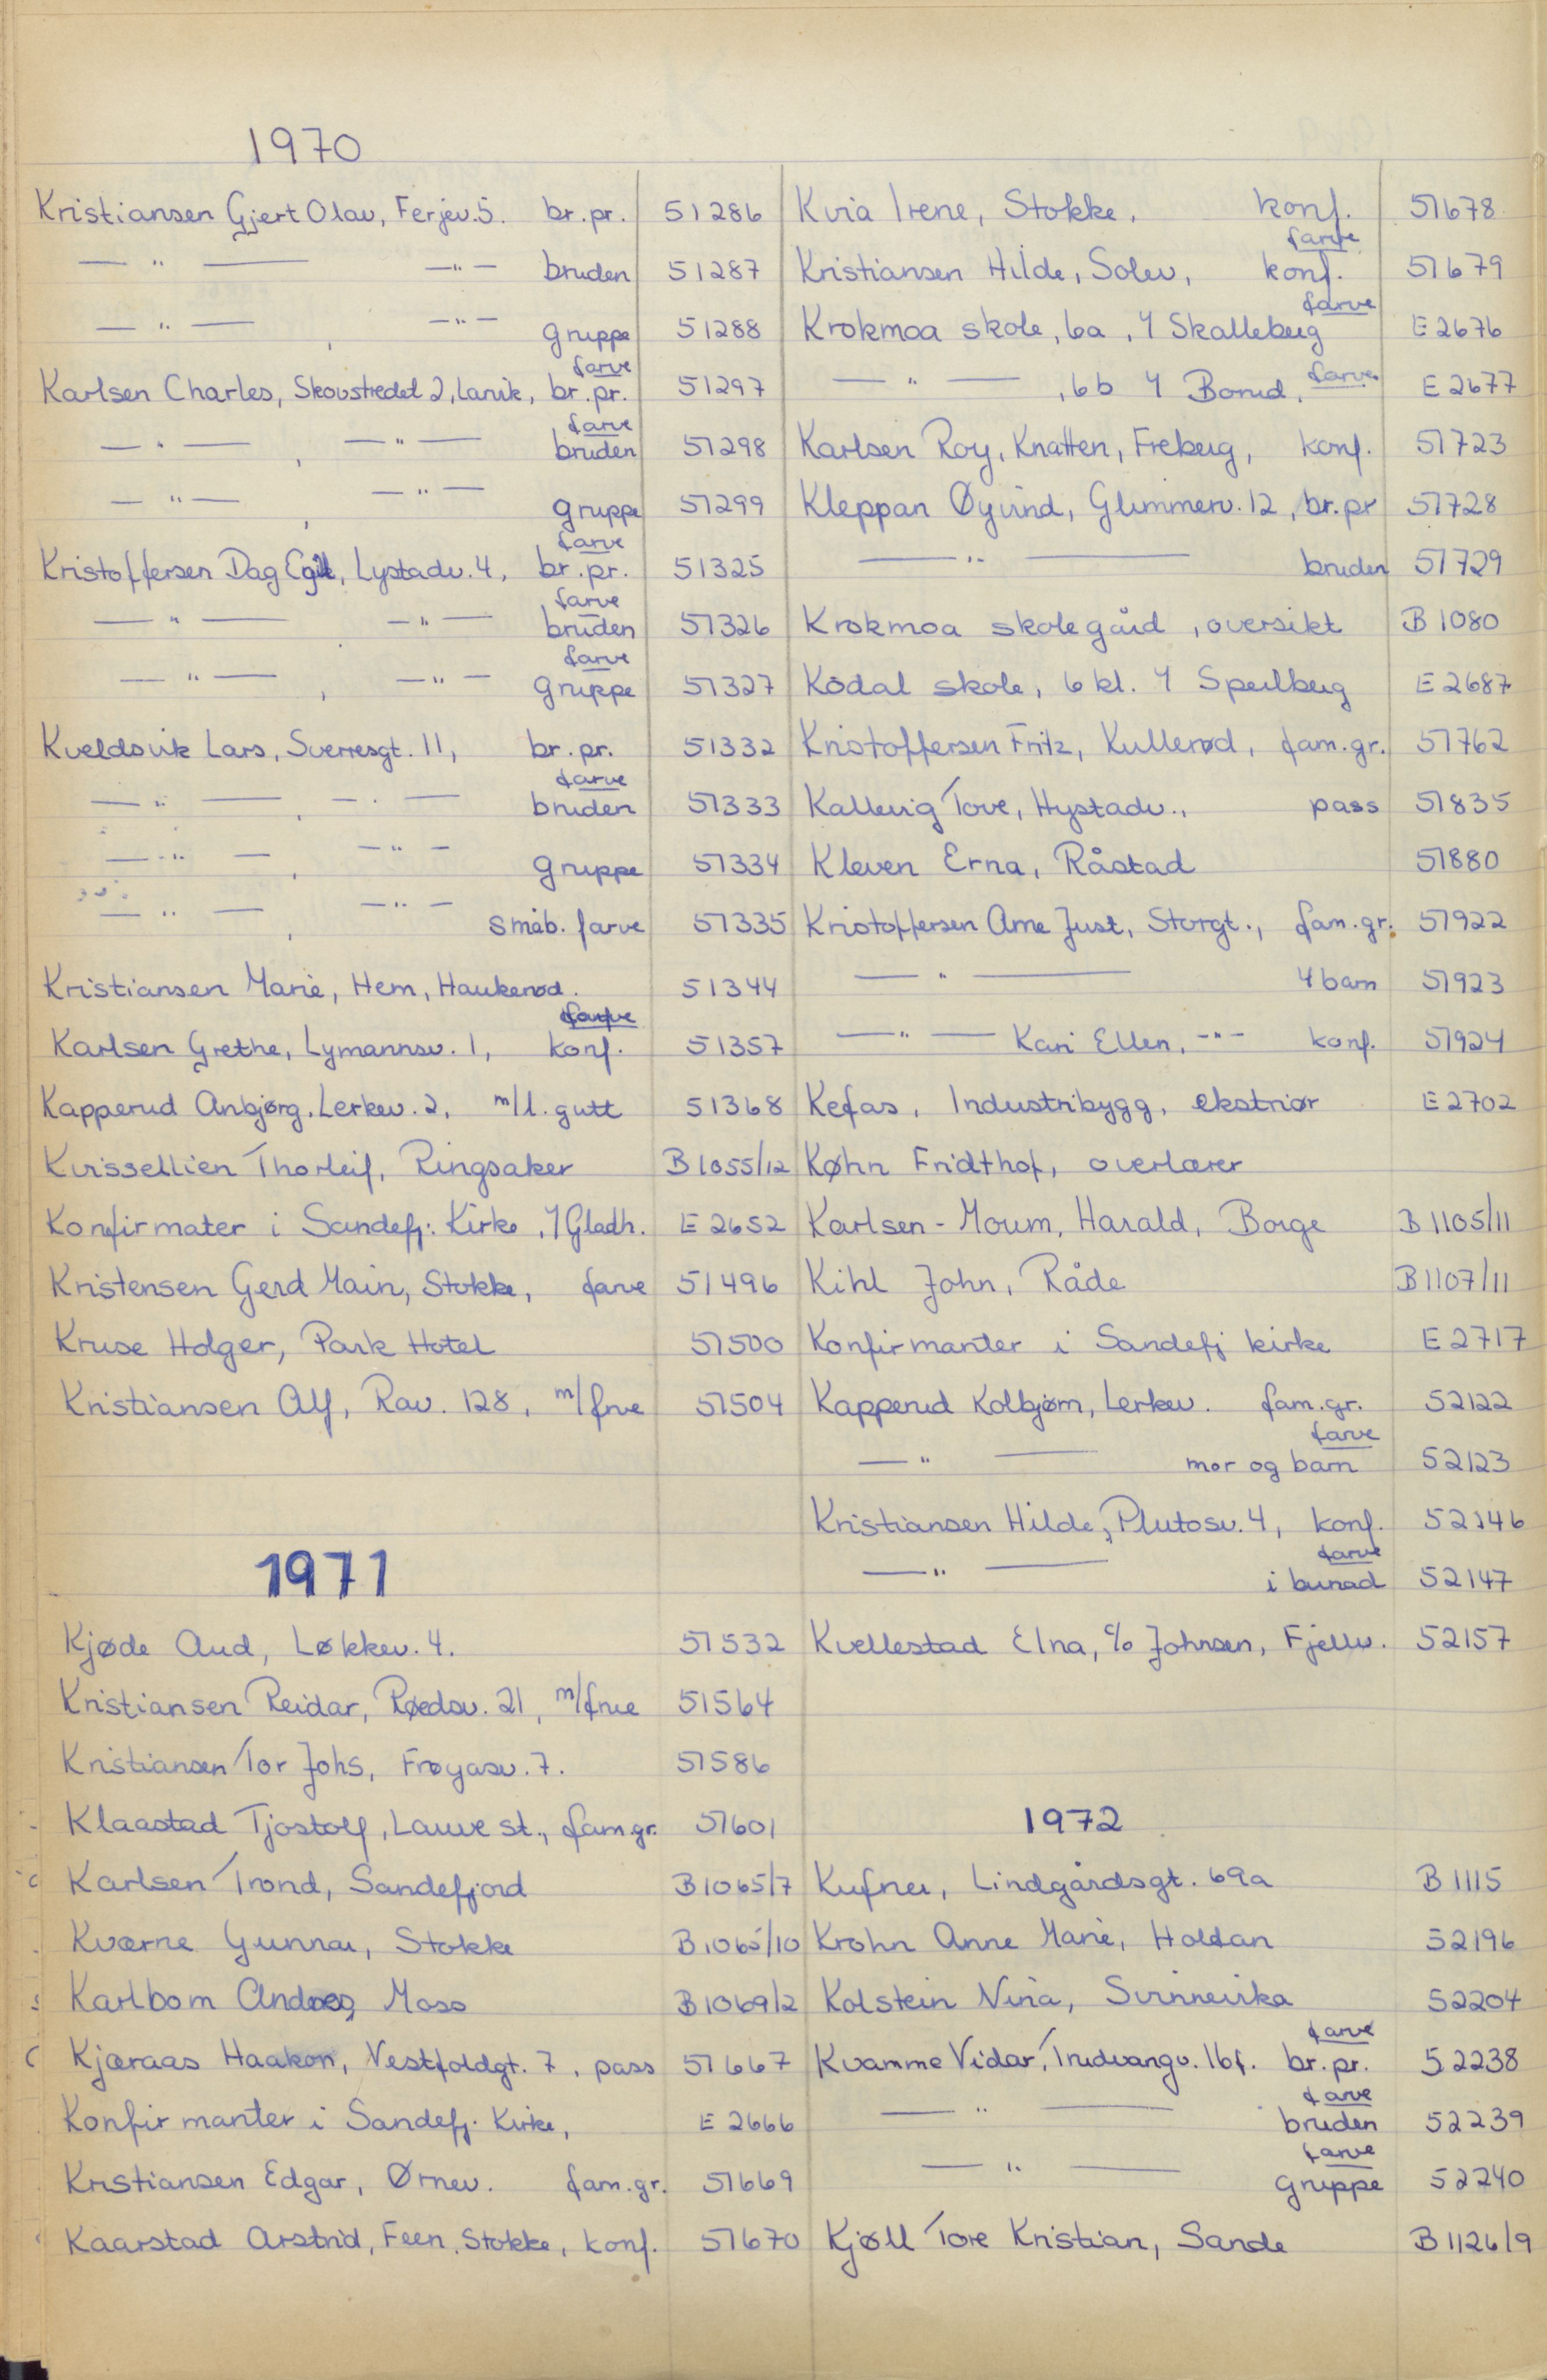 1970
Kristiansen Gjert Olav, Ferjev. 5. br. pr. 51286
— " — — " — bruden 51287
— " — , — " — gruppe 51288
farve
Karlsen Charles, Skovstredet 2, Larvik, br. pr. 51297
farve
— " — , — " — bruden 51298
— " — , — " — gruppe 51299
farve
Kristoffersen Dag Egil, Lystadv. 4, br. pr. 51325
farve
— " — — " — bruden 51326
farve
— " — , — " — gruppe 51327
Kveldsvik Lars, Sverresgt. 11, br. pr. 51332
farve
— " — , — " — bruden 51333
— " — , — " — gruppe 51334
— " — , — " — småb. farve 51335
Kristiansen Marie, Hem, Haukerød. 51344
farve
Karlsen Grethe, Lymannsv. 1, konf. 51357
Kapperud Anbjørg, Lerkev. 2, m/l. gutt 51368
Kvissellien Thorleif, Ringsaker B 1055/12
Konfirmater i Sandefj: Kirke, Y Gladh. E 2652
Kristensen Gerd Main, Stokke, farve 51496
Kruse Holger, Park Hotel 51500
Kristiansen Alf, Rav. 128, m/frue 51504
1971
Kjøde Aud, Løkkev. 4. 51532
Kristiansen Reidar, Røedsv. 21, m/frue 51564
Kristiansen Tor Johs, Frøyasv. 7. 51586
Klaastad Tjostolf, Lauve st., fam.gr. 51601
Karlsen Trond, Sandefjord B 1065/7
Kværne Gunnar, Stokke B 1065/10
Karlbom Andreas, Moss B 1069/2
Kjæraas Haakon, Vestfoldgt. 7, pass 51667
Konfirmanter i Sandefj. Kirke, E 2666
Kristiansen Edgar, Ørnev. fam.gr. 51669
Kaarstad Arstrid, Feen, Stokke, konf. 51670
Kvia Irene, Stokke, konf. 51678
farve
Kristiansen Hilde, Solev, konf. 51679
farve
Krokmoa skole, 6a, Y Skalleberg E 2676
— " — , 6b Y Borud, farve E 2677
Karlsen Roy, Knatten, Freberg, konf. 51723
Kleppan Øyvind, Glimmerv. 12, br. pr 51728
— " — bruden 51729
Krokmoa skolegård, oversikt B 1080
Kodal skole, 6 kl. Y Speilberg E 2687
Kristoffersen Fritz, Kullerød, fam. gr. 51762
Kallevig Tove, Hystadv., pass 51835
Kleven Erna, Råstad 51880
Kristoffersen Arne Just, Storgt., fam. gr. 51922
— " — 4 barn 51923
— " — Kari Ellen, — " — konf. 51924
Kefas, Industribygg, ekstriør E 2702
Køhn Fridthof, overlærer
Karlsen - Moum, Harald, Borge B 1105/11
Kihl John, Råde B 1107/11
Konfirmanter i Sandefj kirke E 2717
Kapperud Kolbjørn, Lerkev. fam. gr. 52122
farve
— " — mor og barn 52123
Kristiansen Hilde, Plutosv. 4, konf. 52146
farve
— " — i bunad 52147
Kvellestad Elna, c/o Johnsen, Fjellv. 52157
1972
Kufner, Lindgårdsgt. 69a B 1115
Krohn Anne Marie, Holtan 52196
Kolstein Nina, Svinnevika 52204
farve
Kvamme Vidar, Trudvangv. 16f. br. pr. 52238
farve
— " — bruden 52239
farve
— " — gruppe 52240
Kjøll Tore Kristian, Sande B 1126/9